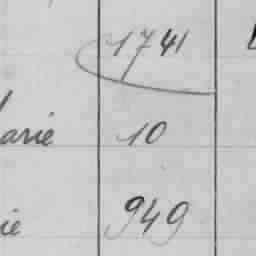 1741
arie 10
ie 949